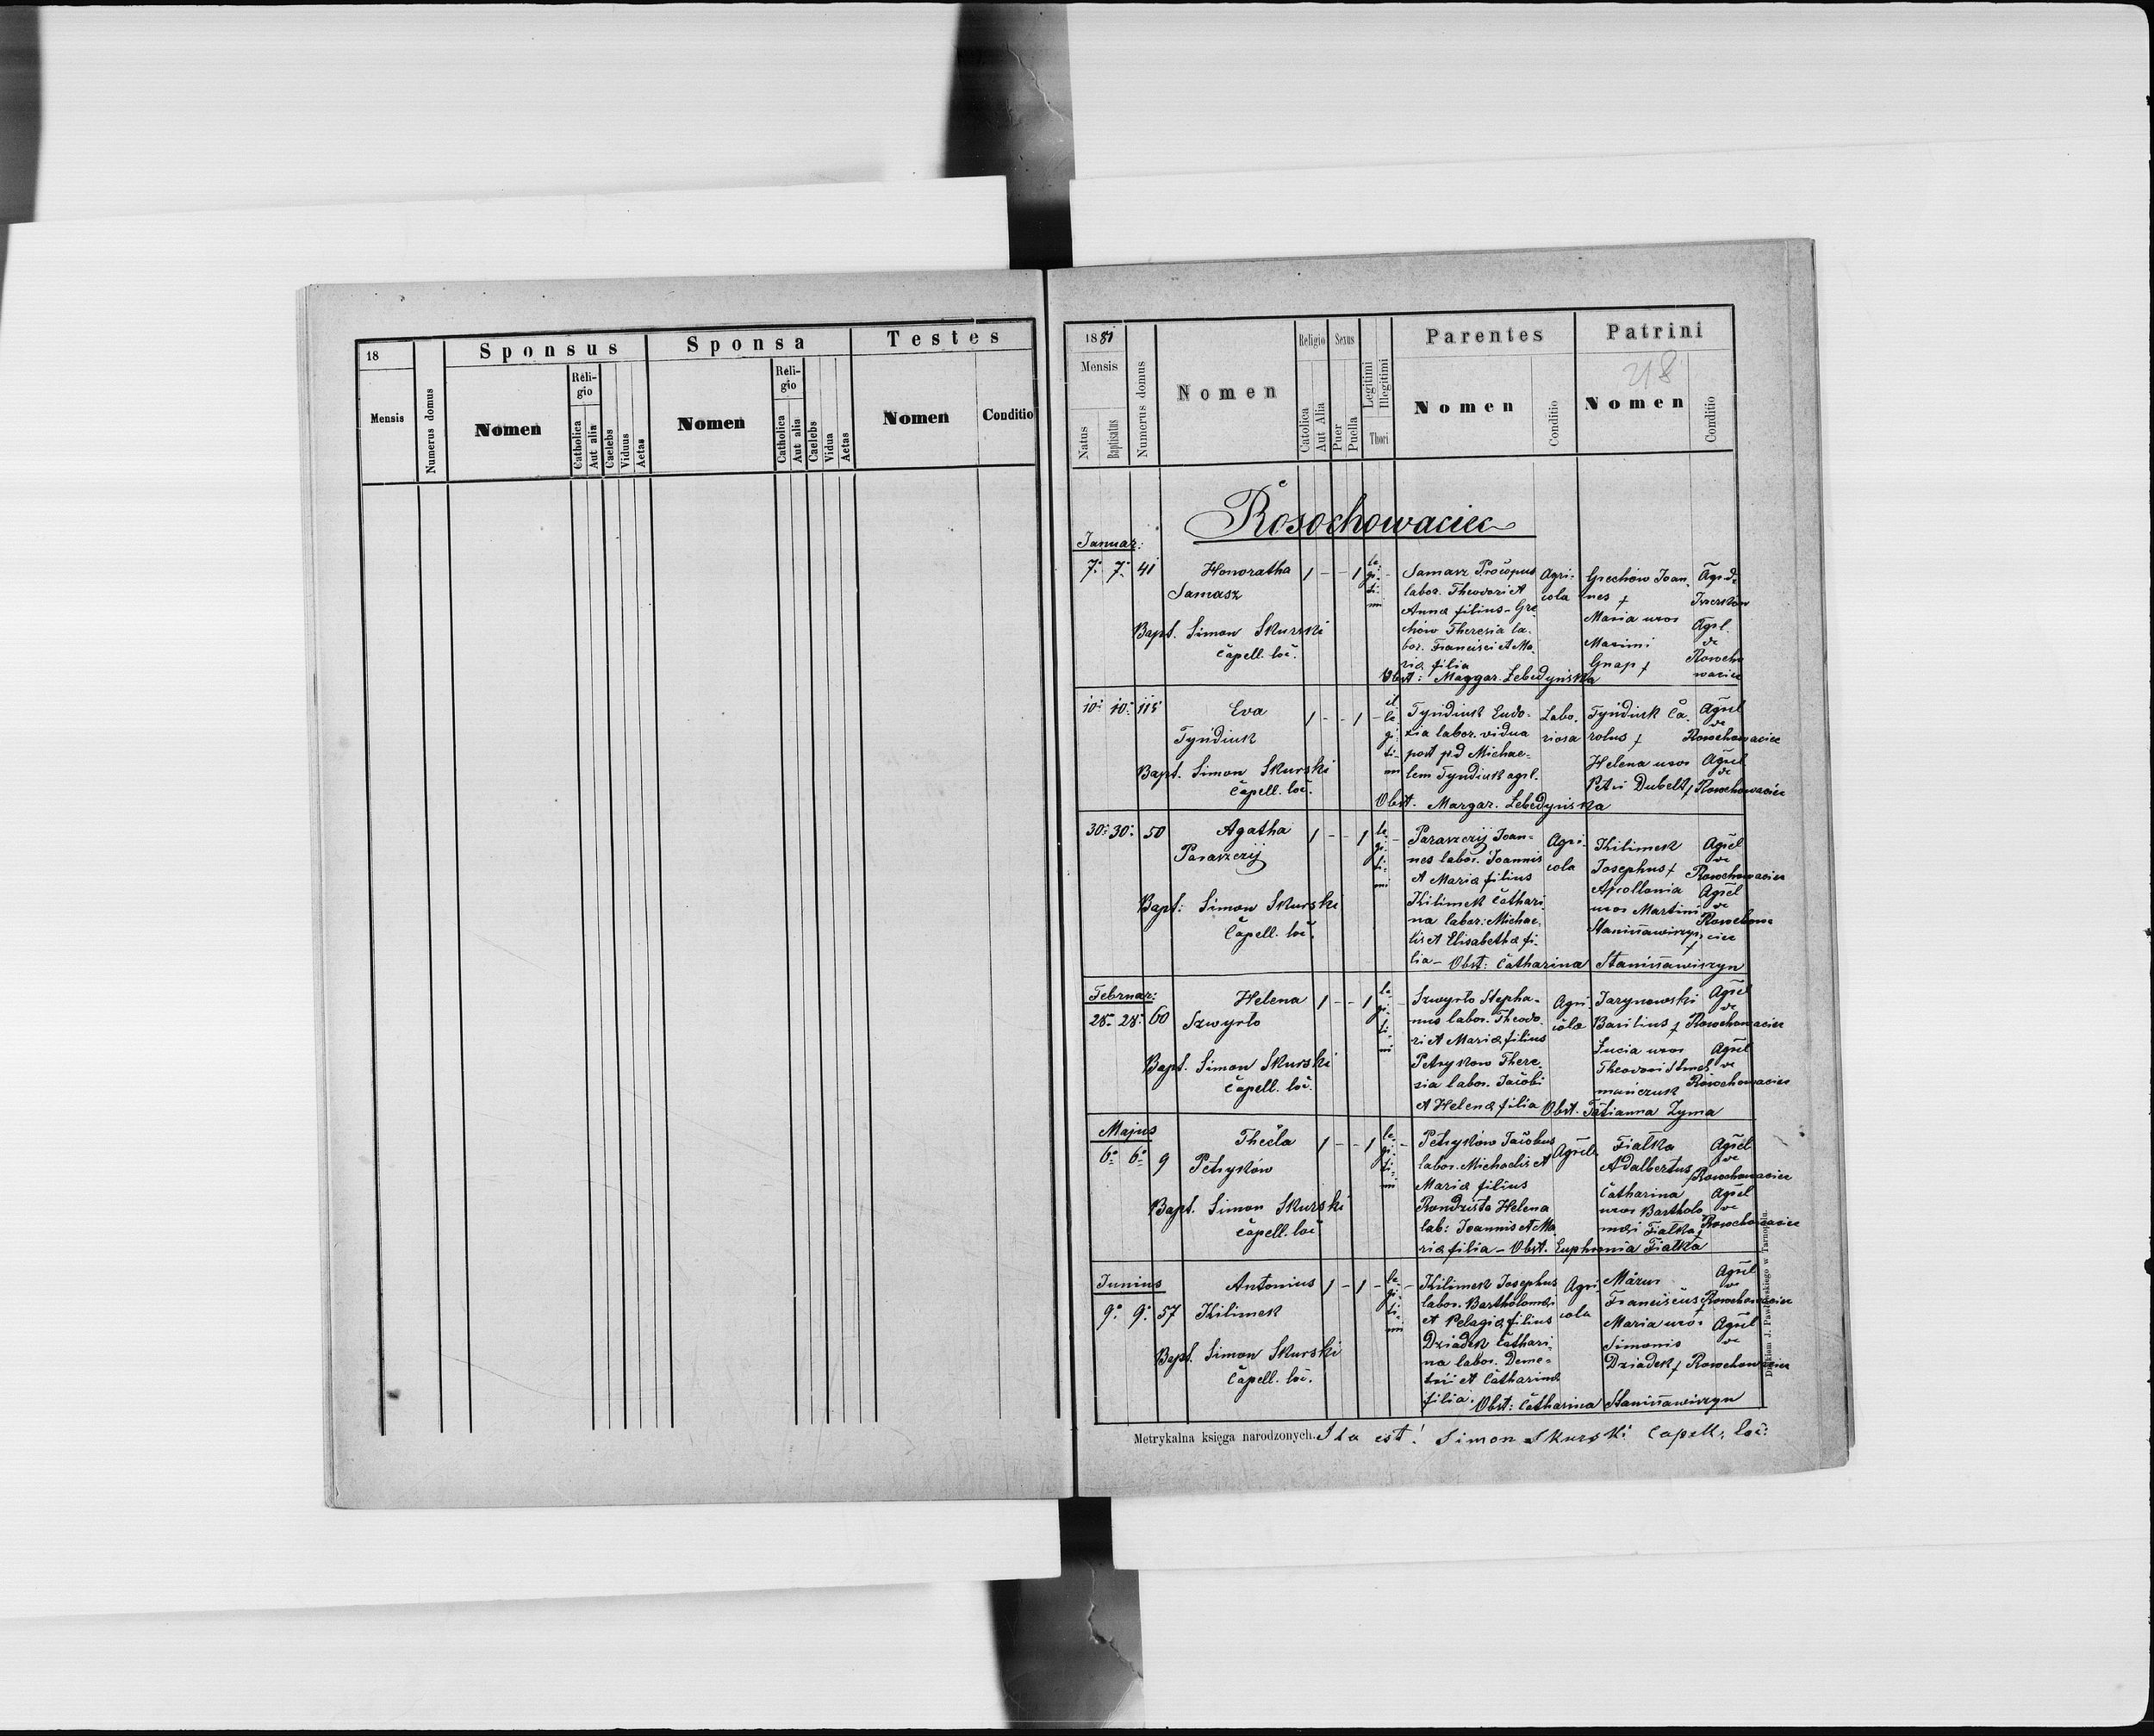 18
Sponsus
Sponsa
Testes
Mensis
Numerus domus
Nomen
Religio
Catholica
Aut alia
Caelebs
Viduus
Aetas
Nomen
Religio
Catholica
Aut alia
Caelebs
Vidua
Aetas
Nomen
Conditio
1881
Mensis
Natus
Baptisatus
Numerus domus
Nomen
Religio
Catolica
Aut Alia
Sexus
Puer
Puella
Legitimi
Illegitimi
Thori
Parentes
Nomen
Conditio
Patrini
218
Nomen
Conditio
Rosochowaciec
Januar:
7. 7. 41 Honoratha 1 - - 1 legitimi -
Samasz
Bapt. Simon Skurski
Capell. loc.
Samasz Procopus
labor. Theodori et
Anna filius - Gre
chów Theresia la-
bor. Francisci et Ma
ria filia
Agri-
cola
Grechów Joan
nes †
Maria uxor
Maximi
Gnap †
Agrl. de
Agrl.
de
Rosocho
waciec
Obst: Margar. Lebedyńska
10. 10. 115 Eva 1 - - 1 - illegitimi
Tyndiuk
Bapt. Simon Skurski
Capell. loc.
Tyndiuk Eudo-
xia labor. vidua
post pd Michae-
lem Tyndiuk agrl.
Labo-
riosa
Tyndiuk Ca
rolus †
Helena uxor
Petri Dubelt †
Agrl
de
Rosochowaciec
Agrl
de
Rosochowaciec
Obst. Margar. Lebedyńska
30. 30. 50 Agatha 1 - - 1 legitimi -
Paraszczij
Bapt: Simon Skurski
Capell. loc.
Paraszczij Joan-
nes labor. Joannis
et Maria filius
Kilimek Cathari
na labor: Michae-
lis et Elisabetha fi-
lia - Obst: Catharina Stanisławiszyn
Agri-
cola
Kilimek
Josephus †
Apollonia
uxor Martini
Stanisławiszyn
†
Agrl
de
Rosochowaciec
Agrl
de
Rosochowa
ciec
Februar:
28. 28. 60 Helena 1 - - 1 legitimi -
Szwyrło
Bapt. Simon Skurski
Capell. loc.
Szwyrło Stepha-
nus labor. Theodo-
ri et Maria filius
Petryków There-
sia labor. Jacobi
et Helena filia Obst. Tatianna Zyma
Agri-
cola
Jarynowski
Basilius †
Lucia uxor
Theodori
Agrl
de
Rosochowaciec
Agrl
de
Rosochowaciec
Majus
6. 6. 9 Thecla 1 - - 1 legitimi -
Petryków
Bapt. Simon Skurski
Capell. loc.
Petryków Jacobus
labor. Michaelis et
Maria filius
Helena
lab: Joannis et Ma
ria filia - Obst. Euphemia Fiałka
Agrl
Fiałka
Adalbertus †
Catharina
uxor Bartholo
mei Fiałka
Agrl
de
Rosochowaciec
Agrl
de
Rosochowaciec
Junius
9. 9. 57 Antonius 1 - 1 - legitimi -
Kilimek
Bapt. Simon Skurski
Capell. loc.
Kilimek Josephus
labor. Bartholomei
et Pelagia filius
Dziadek Cathari-
na labor. Deme-
trii et Catharina
filia. Obst: Catharina Stanisławiszyn
Agri-
cola
Mazur
Franciscus
Maria uxor
Simonis
Dziadek †
Agrl
de
Rosochowaciec
Agrl
de
Rosochowaciec
Metrykalna księga narodzonych.
Ita est! Simon Skurski Capell. loc:
Drukiem J. Pawłowskiego w Tarnopolu.